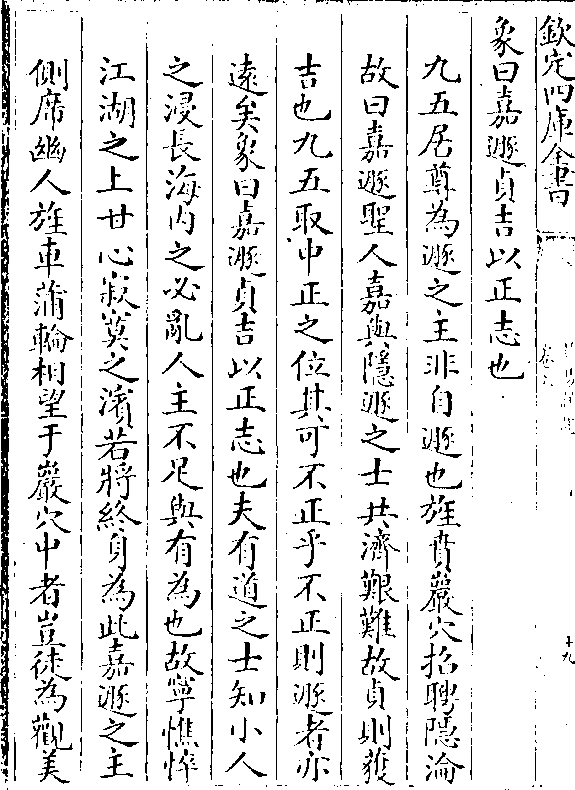 欽定四庫全書
象曰嘉遯貞吉以正志也
九五居尊為遯之主非自遯也旌賁巖穴招聘隱淪
故曰嘉遯聖人嘉與隱遯之士共濟艱難故貞則獲
吉也九五取中正之位其可不正乎不正則遯者亦
遠矣象曰嘉遯貞吉以正志也夫有道之士知小人
之浸長海内之必亂人主不足與有為也故寧憔悴
江湖之上甘心寂寞之濱若將終身為此嘉遯之主
側席幽人旌車蒲輪相望于巖穴中者豈徒為觀美
十九